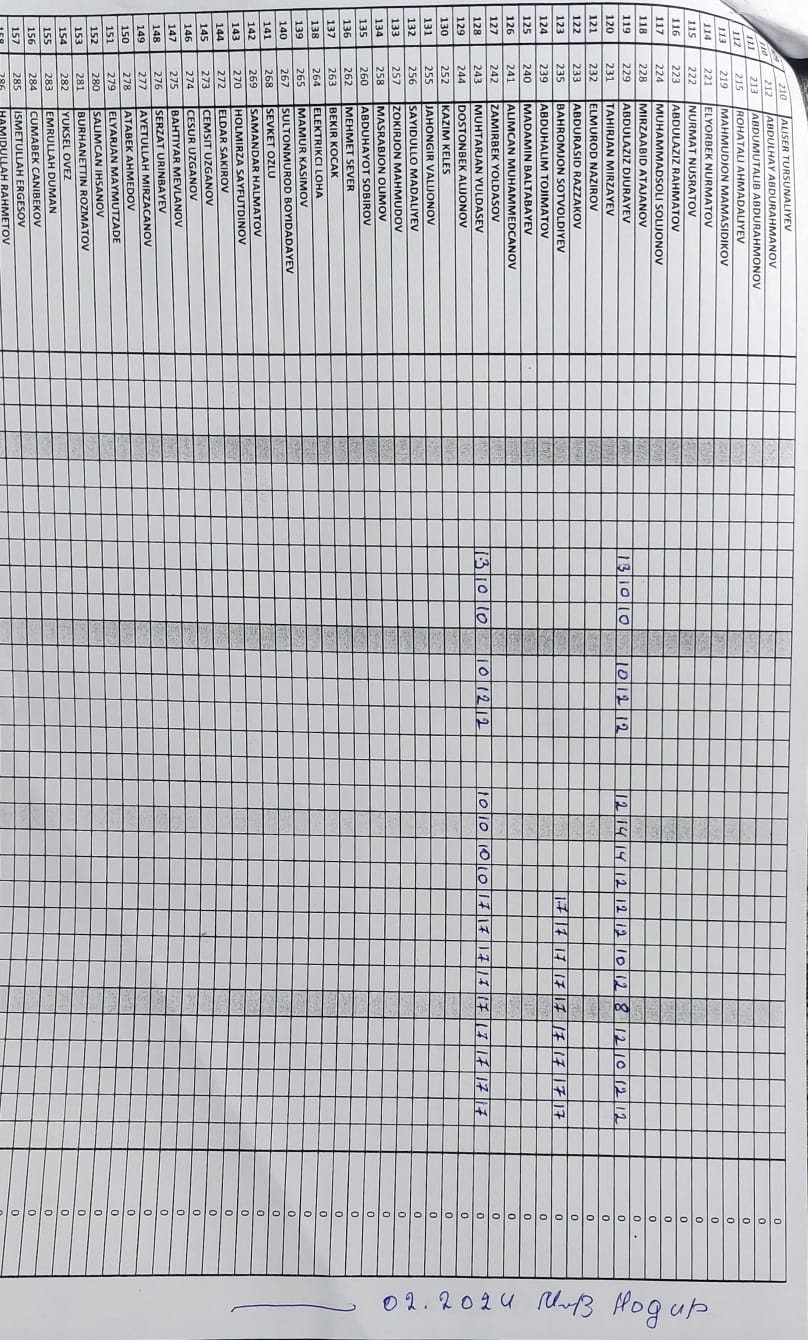 109 210 ALISER TURSUNALIYEV 0
110 212 ABDULHAY ABDURAHMANOV 0
111 213 ABDUMUTALIB ABDURAHMONOV 0
112 215 ROHATALI AHMADALIYEV 0
113 219 MAHMUDJON MAMASIDIKOV 0
114 221 ELYORBEK NURMATOV 0
115 222 NURMAT NUSRATOV 0
116 223 ABDULAZIZ RAHMATOV 0
117 224 MUHAMMADSOLI SOLIJONOV 0
118 228 MIRZAABID ATAJANOV 0
119 229 ABDULAZIZ DJURAYEV 13 10 10 10 12 12 12 14 14 12 12 12 10 12 8 12 10 12 12 0
120 231 TAHIRJAN MIRZAYEV 0
121 232 ELMUROD NAZIROV 0
122 233 ABDURASID RAZZAKOV 0
123 235 BAHROMJON SOTVOLDIYEV 17 17 17 17 17 17 17 17 17 0
124 239 ABDUHALIM TOJIMATOV 0
125 240 MADAMIN BALTABAYEV 0
126 241 ALIMCAN MUHAMMEDCANOV 0
127 242 ZAMIRBEK YOLDASOV 0
128 243 MUHTARJAN YULDASEV 13 10 10 10 12 12 10 10 10 10 17 17 17 17 17 17 17 17 17 0
129 244 DOSTONBEK ALIJONOV 0
130 252 KAZIM KELES 0
131 255 JAHONGIR VALIJONOV 0
132 256 SAYIDULLO MADALIYEV 0
133 257 ZOKIRJON MAHMUDOV 0
134 258 MASRABJON OLIMOV 0
135 260 ABDUHAYOT SOBIROV 0
136 262 MEHMET SEVER 0
137 263 BEKIR KOCAK 0
138 264 ELEKTRIKCI LOHA 0
139 265 MAMUR KASIMOV 0
140 267 SULTONMUROD BOYIDADAYEV 0
141 268 SEVKET OZLU 0
142 269 SAMANDAR HALMATOV 0
143 270 HOLMIRZA SAYFUTDINOV 0
144 272 ELDAR SAKIROV 0
145 273 CEMSIT UZGANOV 0
146 274 CESUR UZGANOV 0
147 275 BAHTIYAR MEVLANOV 0
148 276 SERZAT URINBAYEV 0
149 277 AYETULLAH MIRZACANOV 0
150 278 ATABEK AHMEDOV 0
151 279 ELYARJAN MAYMUTZADE 0
152 280 SALIMCAN IHSANOV 0
153 281 BURHANETTIN ROZMATOV 0
154 282 YUKSEL OVEZ 0
155 283 EMRULLAH DUMAN 0
156 284 CUMABEK CANIBEKOV 0
157 285 ISMETULLAH ERGESOV 0
158 286 HAMIDULLAH RAHMETOV
02.2024